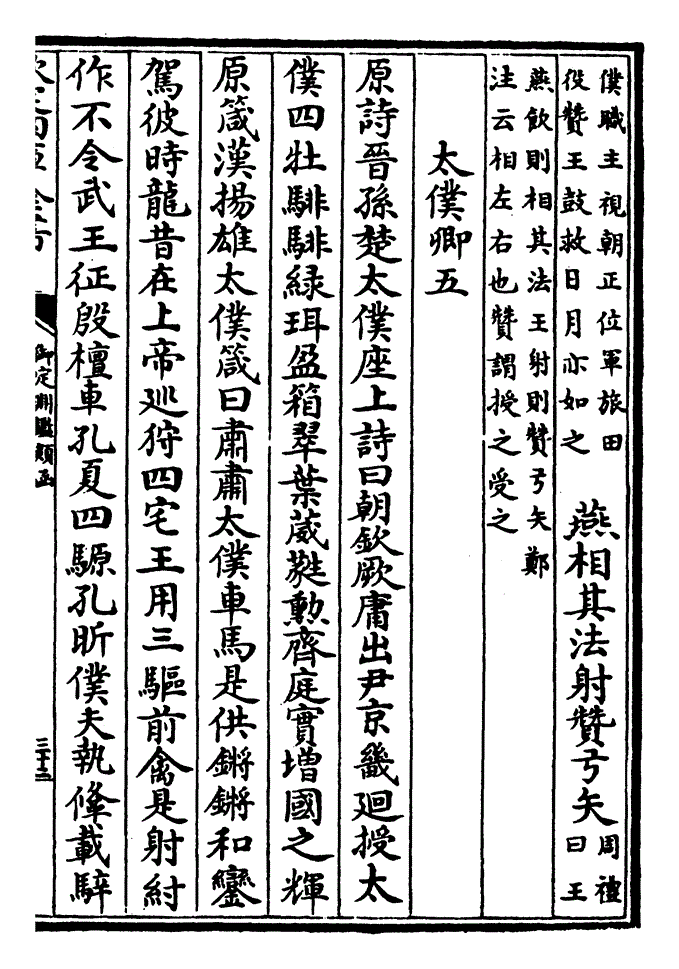 僕職主視朝正位軍旅田
役贊王鼓救日月亦如之
燕相其法射贊弓矢
周禮
曰王
燕飲則相其法王射則贊弓矢鄭
注云相左右也贊謂授之受之
太僕卿五
原詩晉孫楚太僕座上詩曰朝欽厥庸出尹京畿廻授太
僕四牡騑騑緑珥盈箱翠葉葳蕤勲齊庭實增國之輝
原箴漢揚雄太僕箴曰肅肅太僕車馬是供鏘鏘和鑾
駕彼時龍昔在上帝巡狩四宅王用三驅前禽是射紂
作不令武王征殷檀車孔夏四騵孔昕僕夫執載騂
欽定四庫全書
御定淵鑑類函
三十三